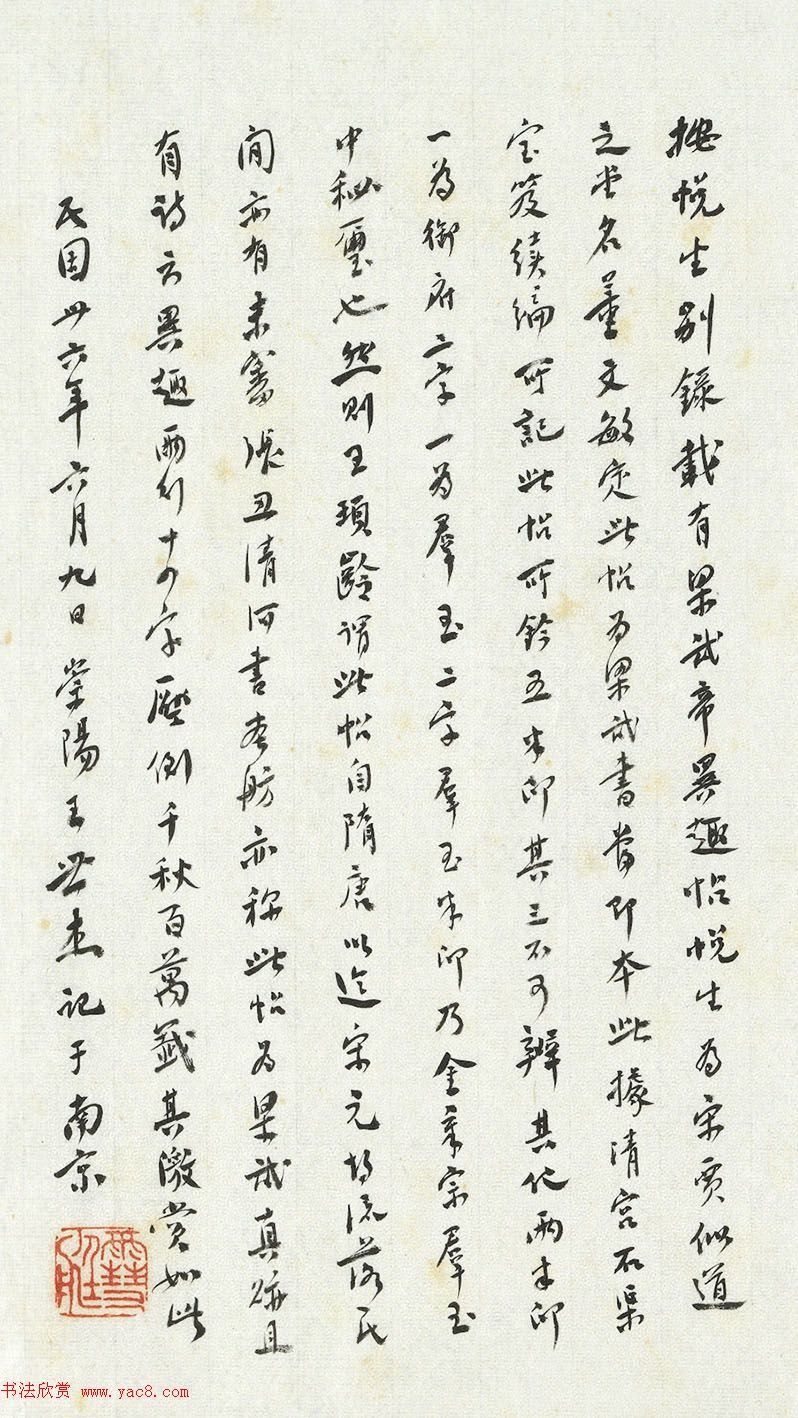 按悅生別錄載有梁武帝異趣帖悅生為宋賈似道
之堂名董文敏定此帖為梁武書當即本此據清宮石渠
宝笈續編所記此帖所鈐五半印其三不可辨其他兩半印
一為御府二字一為羣玉二字羣玉半印乃金章宗羣玉
中秘璽也然則王頊齡謂此帖自隋唐以迄宋元均流落民
間亦有未審張丑清河書画舫亦称此帖為梁武真跡且
有詩云異趣兩行十四字壓倒千秋百萬籤其激賞如此
民国卅六年六月九日崇陽王世杰記于南京
书法欣赏 www.yac8.com